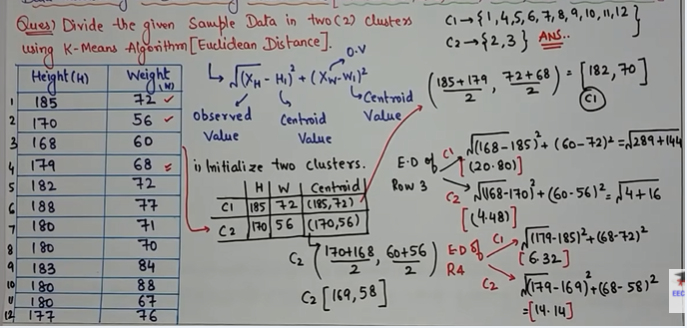 Ques) Divide the given Sample Data in two(2) clusters
using K-Means Algorithm [Euclidean Distance].
C1 → {1,4,5,6,7,8,9,10,11,12}
C2 → {2,3} ANS..
Height(H) Weight(W)
1 185 72
2 170 56
3 168 60
4 179 68
5 182 72
6 188 77
7 180 71
8 180 70
9 183 84
10 180 88
11 180 67
12 177 76
O.V
↳ √(X_H - H₁)² + (X_W - W₁)²
observed Value
Centroid Value
Centroid Value
i) Initialize two clusters.
H W Centroid
C1 185 72 (185,72)
C2 170 56 (170,56)
C2 (170+168/2, 60+56/2)
C2 [169,58]
(185+179/2, 72+68/2) = [182,70]
C1
E.D of Row 3
C1 √(168-185)²+(60-72)² = √289+144
[20.80]
C2 √(168-170)²+(60-56)² = √4+16
[(4.48)]
E.D of R4
C1 √(179-185)²+(68-72)²
[6.32]
C2 √(179-169)²+(68-58)²
=[14.14]
EEC